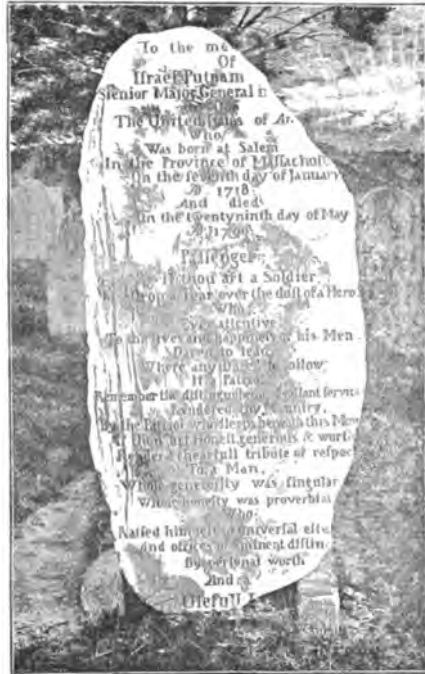 To the me
Of
Ifrael Putnam
Sienior Major General in
The United States of Am
Who
Was born at Salem
In the Province of Maffachof
On the feventh day of January
AD 1718
And died
On the twentyninth day of May
AD 179
Paffenger
If thou art a Soldier
Drop a Tear over the duft of a Hero
Who
Ever attentive
To the lives and happinefs of his Men
Dared to lead
Where any Dared to follow
If a Patriot
Remember the diftinguifhed gallant fervice
Rendered thy Country
By the Patriot who fleeps beneath this Mon
If thou art Honeft generous & worth
Render a chearfull tribute of refpec
To a Man,
Whofe generofity was fingular
Whofe honefty was proverbial
Who
Raifed himfelf to univerfal efte
And offices of eminent diftin
By perfonal worth
And a
Ufefull L